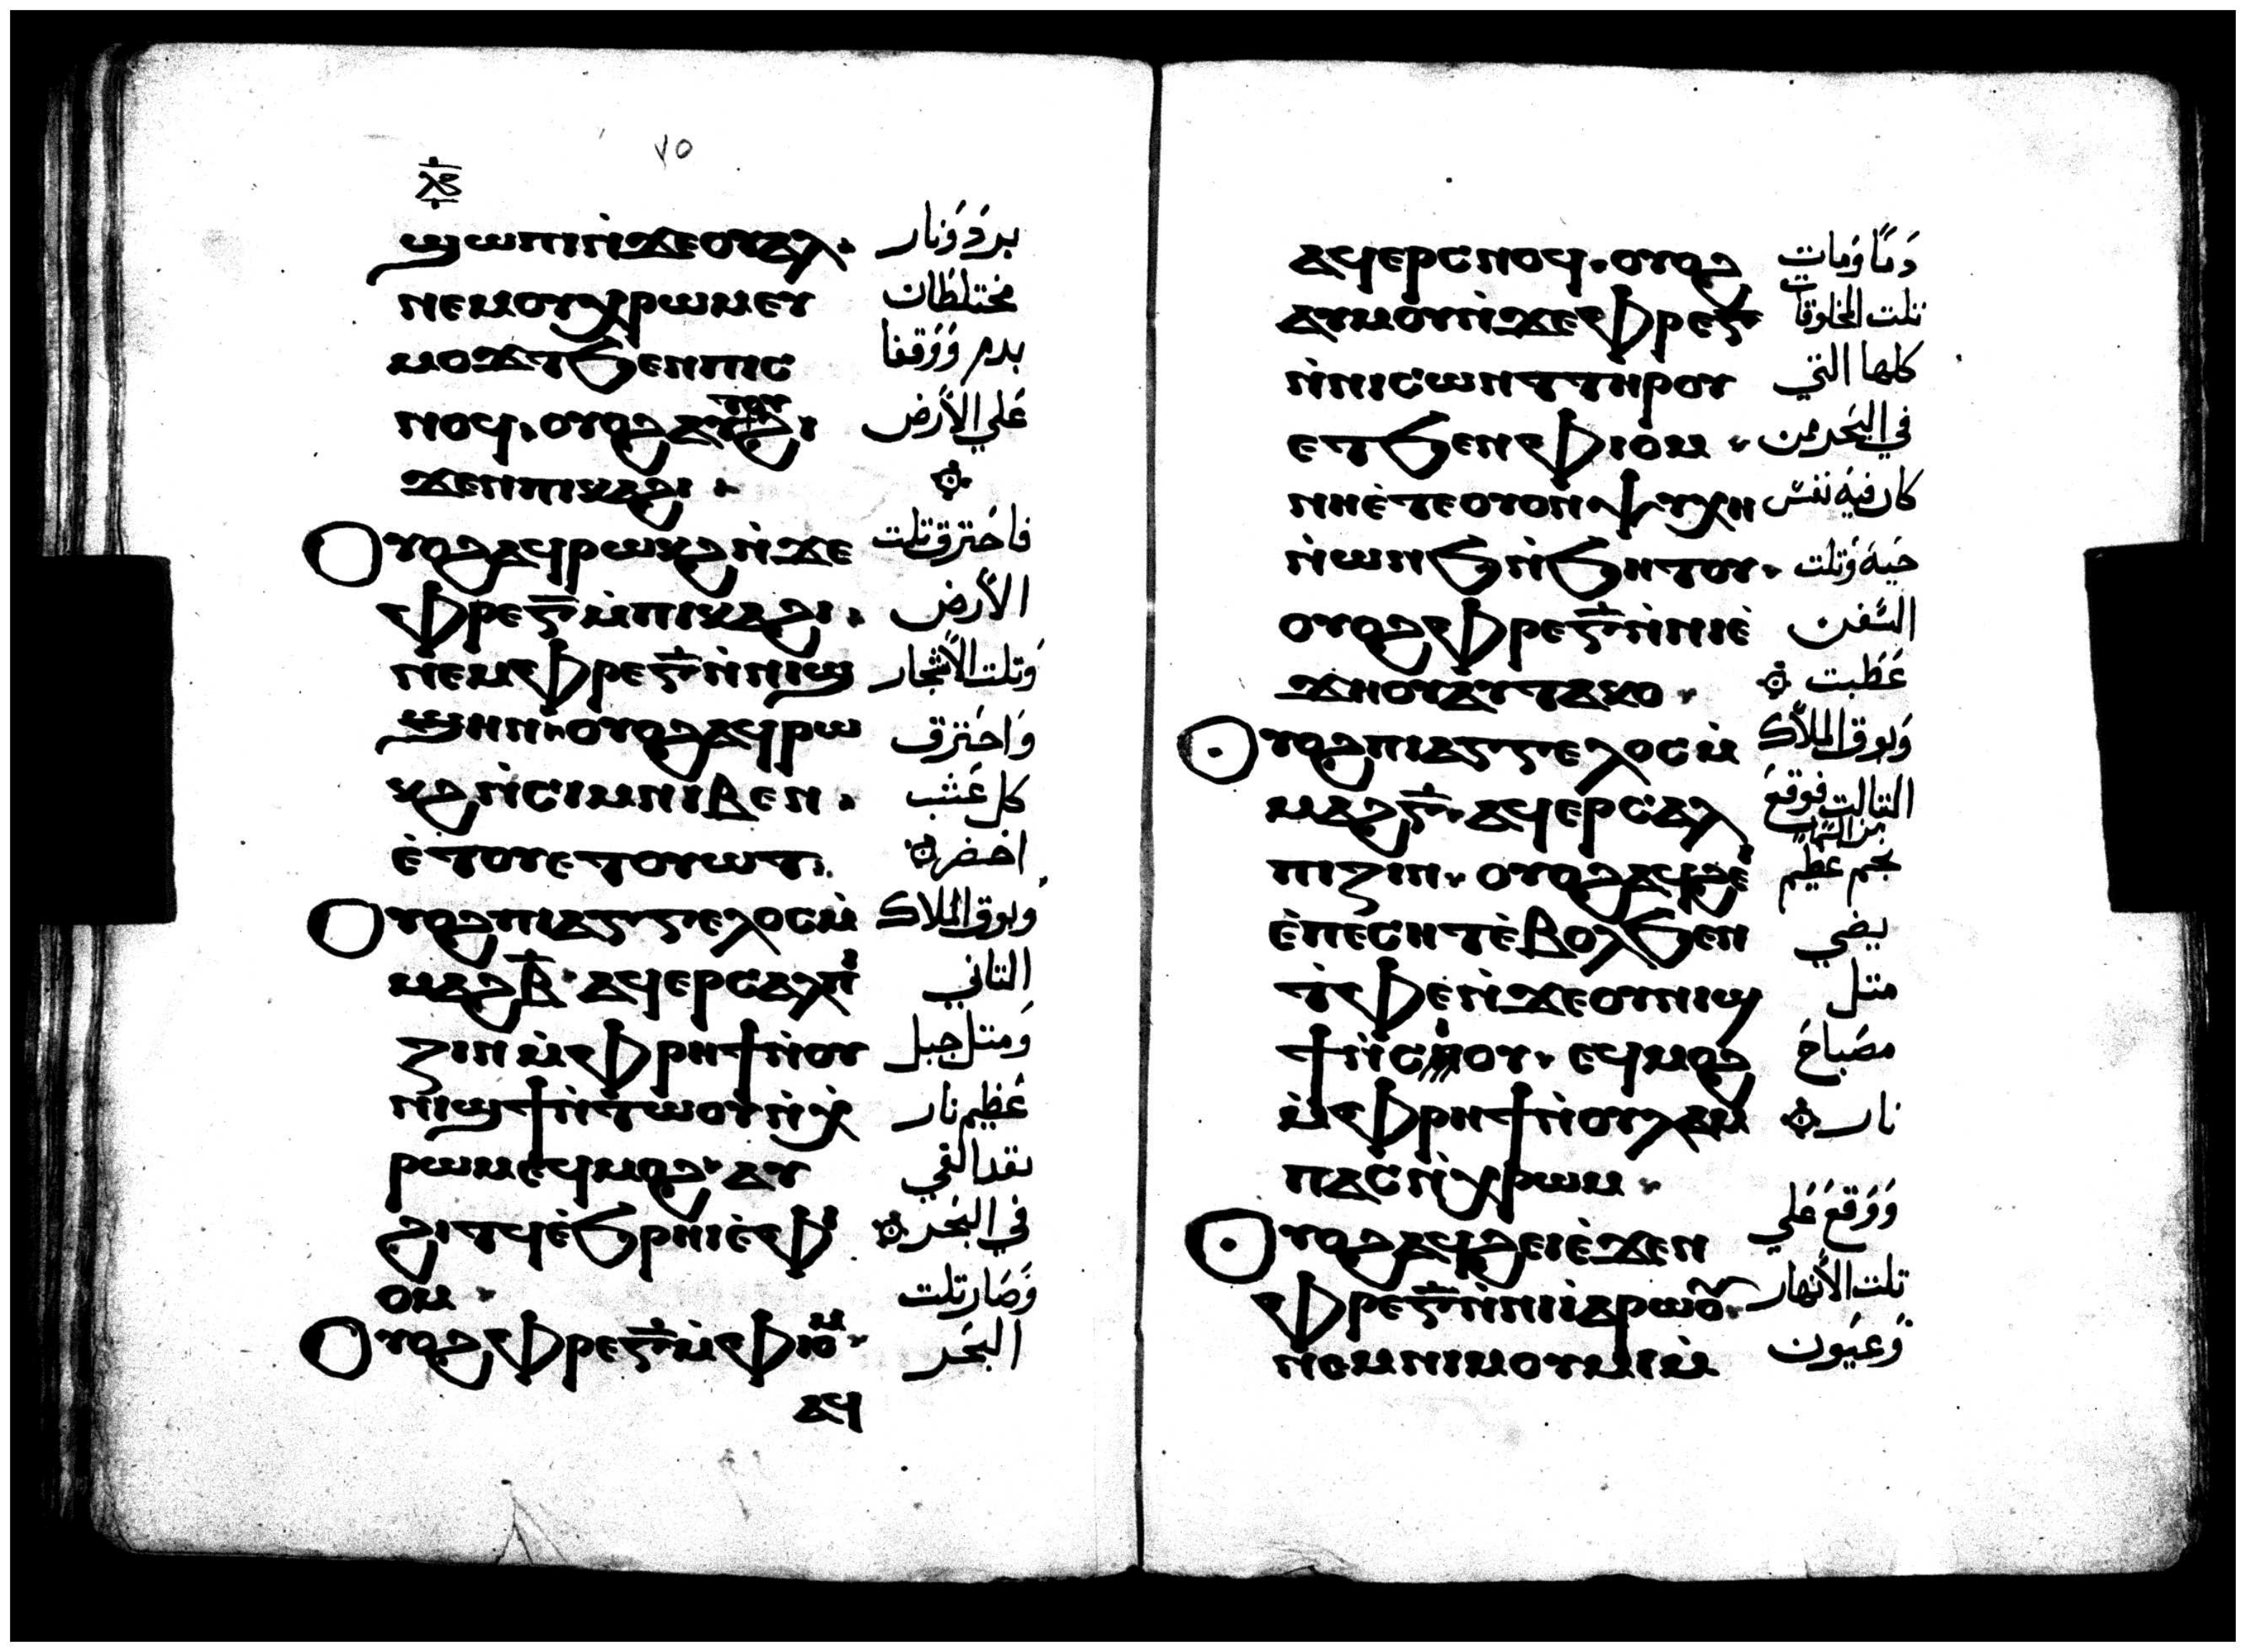 ٧٥
ⲟ̅ⲉ̅
ϣⲱⲡⲓⲛ̀ϫⲉⲟⲩⲁⲗ. برَدوَنار
ⲛⲉⲙⲟⲩⲭⲣⲱⲙⲉⲩ مختلطان
ⲙⲟϫⲧϧⲉⲛⲡⲓⲥ بدم وَوَقفا
ⲛⲟϥ. ⲟⲩⲟϩⲁⲩϩⲓ ⲧⲟⲩ عَلي الأرض
ϫⲉⲛⲡⲓⲕⲁϩⲓ.
Ⲟⲩⲟϩⲁϥⲣⲱⲕϩⲛ̀ϫⲉ فاحَترق تلت
ⲫⲣⲉⲅ̅ⲙ̀ⲡⲓⲕⲁϩⲓ. الأرض
ⲛⲉⲙⲫⲣⲉⲅ̅ⲛ̀ⲛⲓϣ وَتلت الأشجار
ϣⲏⲛ. ⲟⲩⲟϩⲁϥⲣⲱ وَاحَترق
ⲕϩⲛ̀ⲥⲓⲙⲛⲓⲃⲉⲛ. كل عَشب
ⲉ̀ⲧⲟⲩⲉⲧⲟⲩⲱⲧ. اخضر
Ⲟⲩⲟϩⲡⲓⲁⲅⲅⲉⲗⲟⲥⲙ̀ وبوق الملاك
ⲙⲁϩⲃ̅. ⲁϥⲉⲣⲥⲁⲗⲡⲓ التاني
ⲍⲓⲛ ⲙ̀ⲫⲣⲏϯⲛ̀ⲟⲩ وَمتل جبل
ⲛⲓϣϯⲛ̀ⲧⲱⲟⲩⲛ̀ⲭ عَظيم نار
ⲣⲱⲙⲉϥⲙⲟϩ. ⲁⲩ تقد القي
ϩⲓⲧϥⲉ̀ϧⲣⲏⲓⲉ̀ⲫⲓ في البَحر
ⲟⲙ. وَصَار تلت
Ⲟⲩⲟϩⲫⲣⲉⲅ̅ⲙ̀ⲫⲓⲟⲙ. البَحَر
ⲁϥ
ⲁϥⲉⲣⲥⲛⲟϥ. ⲟⲩⲟϩ دَمًا وَمات
ⲁⲩⲙⲟⲩⲛ̀ϫⲉⲫⲣⲉⲅ̅ تلت الخلوقات
ⲛ̀ⲛⲓⲥⲱⲛⲧⲧⲏⲣⲟⲩ كلها التي
ⲉⲧϧⲉⲛⲫⲓⲟⲙ. في البَحَر من
ⲛⲏⲉ̀ⲧⲉⲟⲩⲟⲛⲯⲩⲭⲏ كان فيه نفس
ⲛ̀ⲱⲛϧⲛ̀ϧⲏⲧⲟⲩ. حَيه وَتلت
ⲟⲩⲟϩⲫⲣⲉⲅ̅ⲛ̀ⲛⲓⲉ̀ السَفن
ϫⲏⲟⲩⲁⲩⲧⲁⲕⲟ. عَطبت
Ⲟⲩⲟϩⲡⲓⲁⲅⲅⲉⲗⲟⲥⲙ̀ وَبوق الملاك
ⲙⲁϩⲅ̅. ⲁϥⲉⲣⲥⲁⲗ التالت فوقع
ⲡⲓⲍⲓⲛ. ⲟⲩⲟϩⲁϥϩⲉⲓ من السَما نجم عظيم
ⲉ̀ⲡⲉⲥⲏⲧⲉ̀ⲃⲟⲗϧⲉⲛ يضي
ⲧ̀ⲫⲉⲛ̀ϫⲉⲟⲩⲛⲓϣ متل
ϯⲛ̀ⲥⲓⲟⲩ. ⲉϥⲙⲟϩ مصَباحَ
ⲙ̀ⲫⲣⲏϯⲛ̀ⲟⲩⲗⲁⲙ نار
ⲡⲁⲥⲛ̀ⲭⲣⲱⲙ.
Ⲟⲩⲟϩⲁϥϩⲉⲓⲉ̀ϫⲉⲛ وَوَقعَ عَلي
ⲫⲣⲉⲅ̅ⲛ̀ⲛⲓⲓⲁⲣⲱⲟⲩ تلت الأنهار
ⲛⲉⲙⲛⲓⲙⲟⲩⲙⲓⲙ̀ وَعيَون